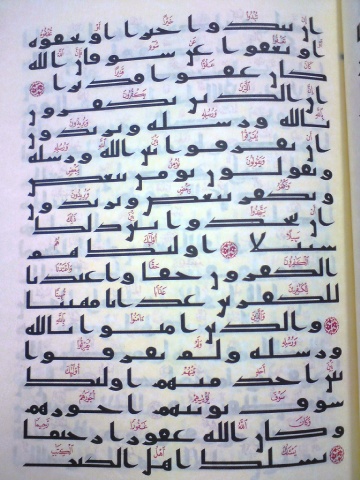 ان تبدوا خيرا او تخفوه
او تعفوا عن سوء فان الله
كان عفوا قديرا
ان الذين يكفرون
بالله ورسله ويريدون
ان يفرقوا بين الله ورسله
ويقولون نؤمن ببعض
ونكفر ببعض ويريدون
ان يتخذوا بين ذلك
سبيلا اولئك هم
الكفرون حقا واعتدنا
للكفرين عذابا مهينا
والذين امنوا بالله
ورسله ولم يفرقوا
بين احد منهم اولئك
سوف يؤتيهم اجورهم
وكان الله غفورا رحيما
يسئلك اهل الكتب